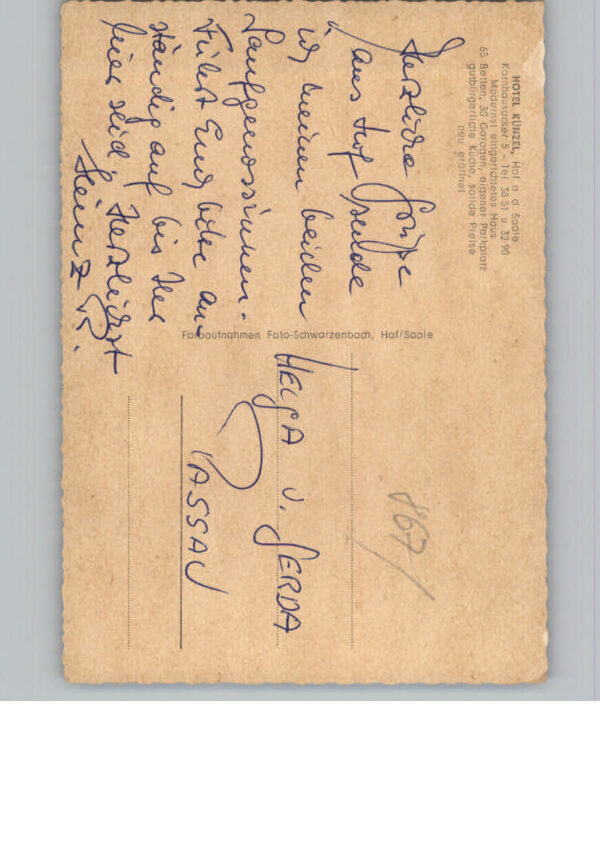 HOTEL KÜNZEL, Hof a. d. Saale
Kornhausacker 5 - Tel. 38 51 u. 32 90
Modernst eingerichtetes Haus
65 Betten, 30 Garagen, eigener Parkplatz
gutbürgerliche Küche, solide Preise
neu eröffnet
Herzliche Grüße
aus Hof sende
ich meinen beiden
Saufgenossinnen.
Führt Euch bitte an-
ständig auf bis Ihr
hier seid. Herzlichst
Heinz
Farbaufnahmen Foto-Schwarzenbach, Hof/Saale
HELGA u. GERDA
PASSAU
867/